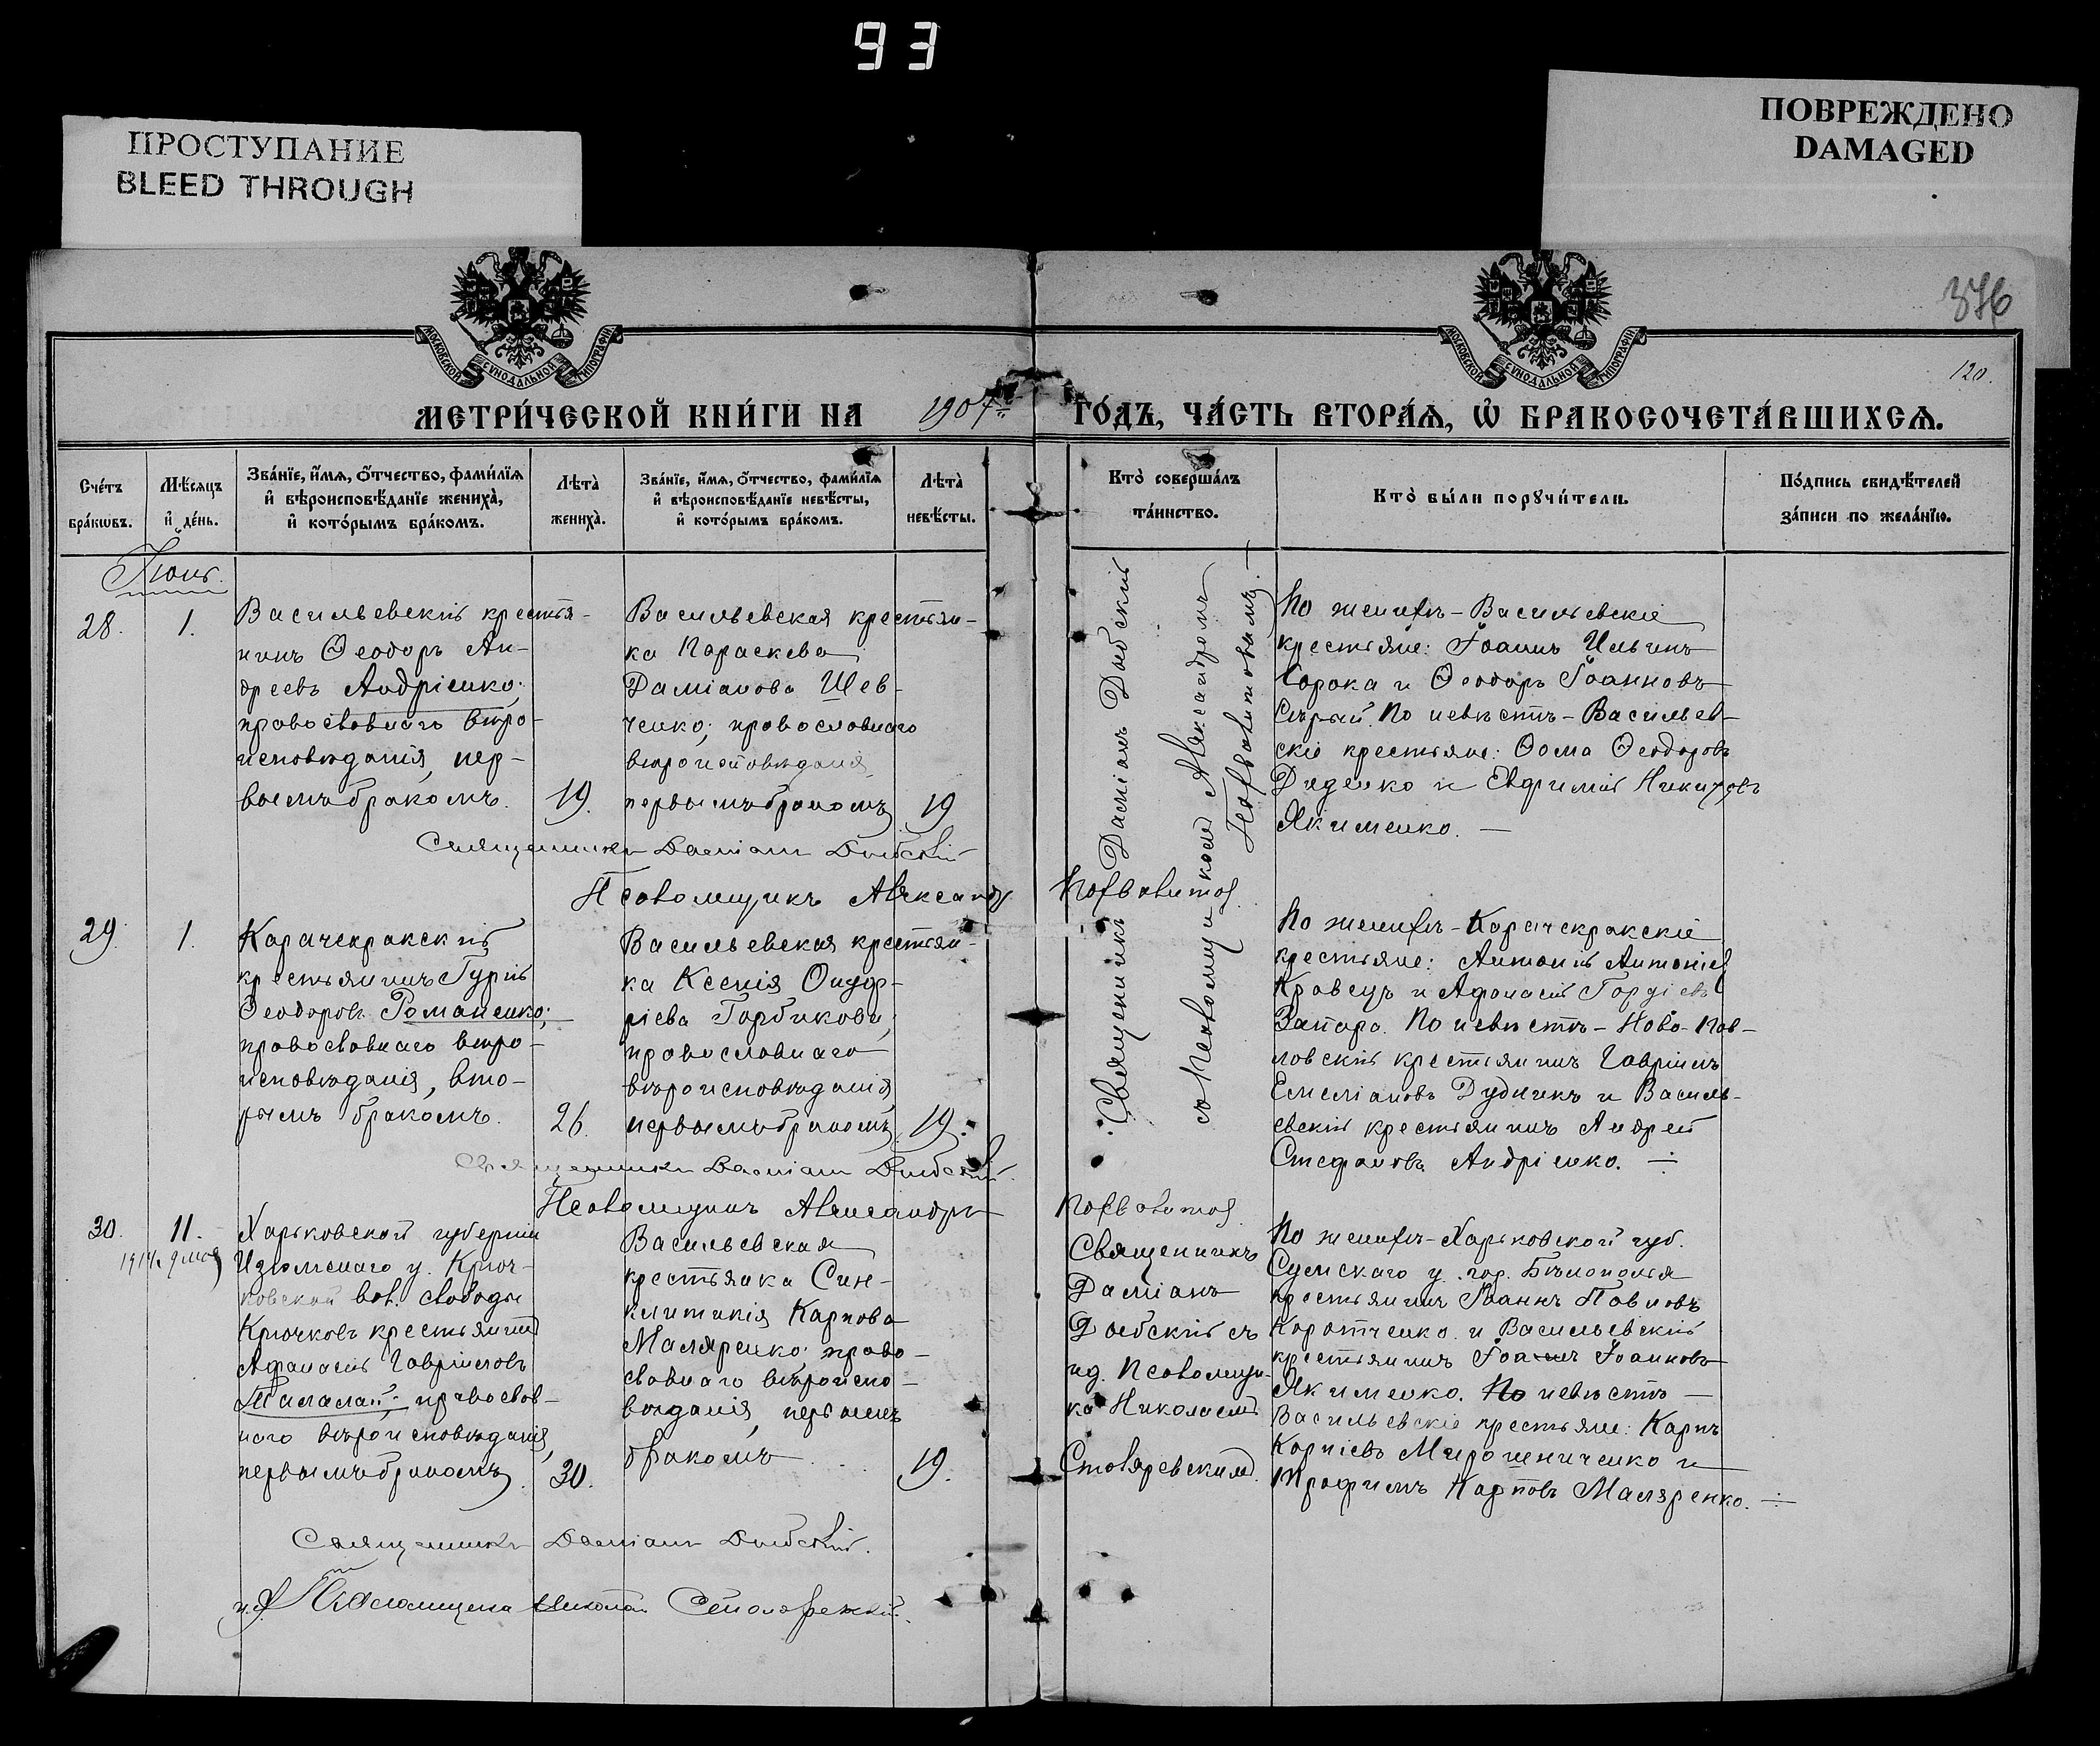 93
ПРОСТУПАНИЕ
BLEED THROUGH
ПОВРЕЖДЕНО
DAMAGED
376
120.
МОСКОВСКОЙ СѴНОДАЛЬНОЙ ТИПОГРАФІИ
МОСКОВСКОЙ СѴНОДАЛЬНОЙ ТИПОГРАФІИ
МЕТРИ́ЧЕСКОЙ КНИ́ГИ НА 1907 ГО́ДЪ, ЧА́СТЬ ВТОРА́Ѧ, Ѽ БРАКОСОЧЕТА́ВШИХСѦ.
Сче́тъ
бра́кѡвъ.
Мѣ́сѧцъ
и҆ де́нь.
Зва́нїе, и҆́мѧ, ѻ҆́тчество, фами́лїѧ
и҆ вѣроисповѣ́данїе жениха̀,
и҆ кото́рымъ бра́комъ.
Лѣта̀
жениха̀.
Зва́нїе, и҆́мѧ, ѻ҆́тчество, фами́лїѧ
и҆ вѣроисповѣ́данїе невѣ́сты,
и҆ кото́рымъ бра́комъ.
Лѣта̀
невѣ́сты.
Кто̀ соверша́лъ
та́инство.
Кто̀ бы́ли порꙋчи́тели.
По́дпись свидѣ́телей
за́писи по жела́нїю.
28. 1.
Васильевскій крестья-
нинъ Ѳеодоръ Ан-
дреевъ Андріенко;
православнаго вѣро-
исповѣданія, пер-
вымъ бракомъ. 19.
Васильевская крестьян-
ка Параскева
Даміанова Шев-
ченко; православнаго
вѣроисповѣданія,
первымъ бракомъ 19
Священникъ Даміанъ
Псаломщикъ Александръ
Священникъ Даміанъ
съ псаломщикомъ Александромъ
По женихѣ - Васильевскіе
крестьяне: Іоаннъ Ильинъ
Сорока и Ѳеодоръ Іоанновъ
Сѣрый. По невѣстѣ - Васильев-
скіе крестьяне: Ѳома Ѳеодоровъ
Диденко и Евфимій Никитовъ
Якименко. —
29. 1.
Карачекракскій
крестьянинъ Гурій
Ѳеодоровъ Романенко;
православнаго вѣро-
исповѣданія, вто-
рымъ бракомъ. 26.
Васильевская крестьян-
ка Ксенія Онуф-
ріева Горбикова;
православнаго
вѣроисповѣданія,
первымъ бракомъ. 19.
Священникъ Даміанъ
Псаломщикъ Александръ
По женихѣ - Карачекракскіе
крестьяне: Антоній Антоніев
Кравецъ и Афанасій Гордіевъ
Запара. По невѣстѣ - Ново-Пав-
ловскій крестьянинъ Гавріилъ
Емеліановъ Дудникъ и Василь-
евскій крестьянинъ Андрей
Стефановъ Андріенко. —
30. 11.
Харьковской губерніи
Изюмскаго у. Крюч-
ковской вол. слободы
Крючковъ крестьянинъ
Афанасій Гавріиловъ
Таламай; православ-
наго вѣроисповѣданія,
первымъ бракомъ. 30.
Васильевская
крестьянка Син-
клитикія Карпова
Маляренко; право-
славнаго вѣроиспо-
вѣданія, первымъ
бракомъ 19.
Священникъ
Даміанъ
съ
ид. псаломщи-
ка Николаемъ
Столяревскимъ
По женихѣ - Харьковской губ.
Сумскаго у. гор. Бѣлополья
крестьянинъ Іоаннъ Павловъ
Коротченко и Васильевскій
крестьянинъ Іоаннъ Іоанновъ
Якименко. По невѣстѣ —
Васильевскіе крестьяне: Карпъ
Карпіевъ Мирошениченко и
Трофимъ Карповъ Маляренко. —
Священникъ Даміанъ
и.д. Псаломщика Николай Столяревскій.